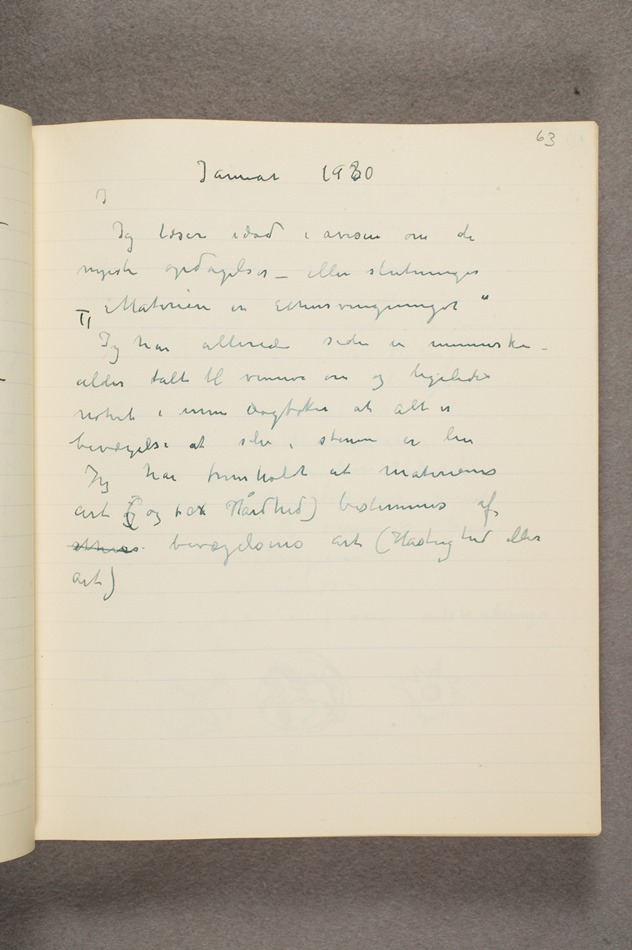 63
Januar 1930
I
Jeg læser idag i avisen om de
nyeste opdagelser – eller slutninger
„Materien er Ethersvingninger"
II
Jeg har allerede siden en menneske-
alder talt til venner om og ligeledes
notert i mine dagbøker at alt er
bevægelse at selv i stenen er liv
Jeg har fremholdt at materiens
art (og Hårdhed) bestemmes af
bevægelsens art (Hastighed eller
art)